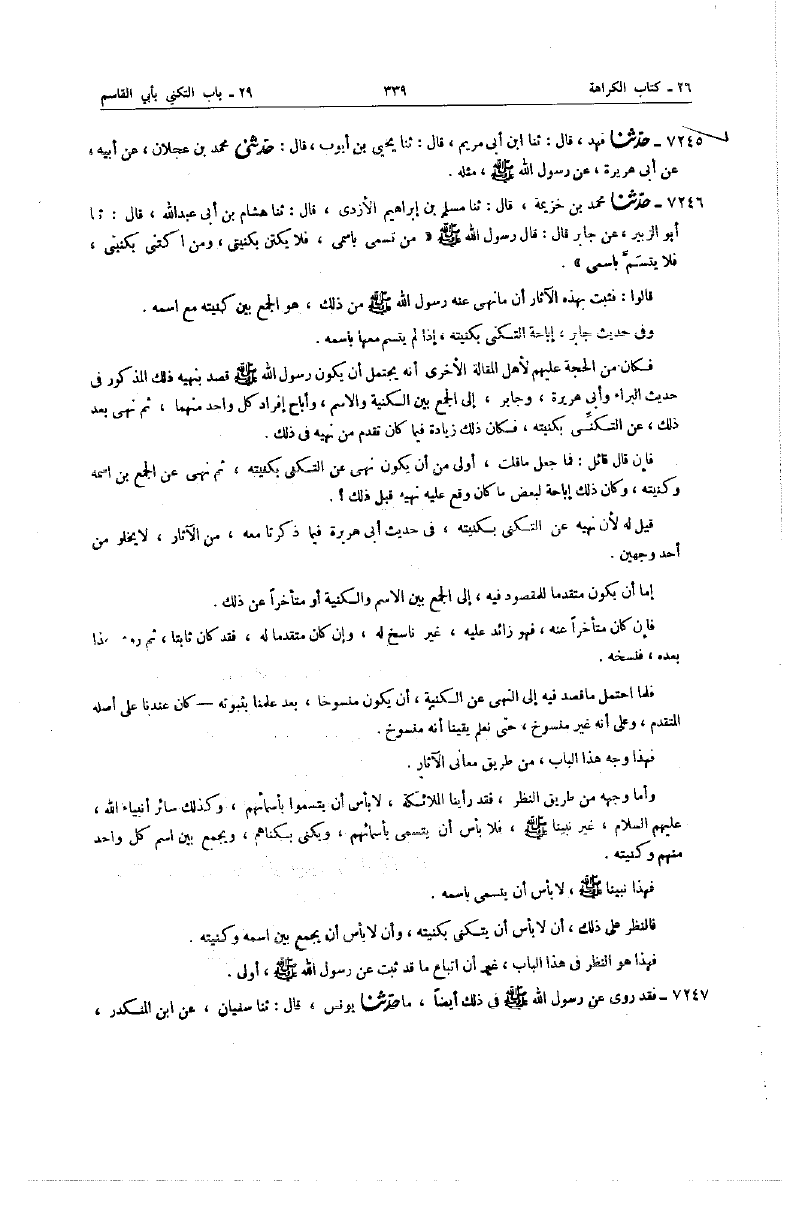 ٢٦ ـ كتاب الكراهة ٣٣٩ ٢٩ ـ باب التكني بأبي القاسم
٧٢٤٥ ـ حدثنا فهد ، قال : ثنا ابن أبى مريم ، قال : ثنا يحيى بن أيوب ، قال : حدثنى محمد بن عجلان ، عن أبيه ،
عن أبى هريرة ، عن رسول الله ﷺ ، مثله .
٧٢٤٦ ـ حدثنا محمد بن خزيمة ، قال : ثنا مسلم بن إبراهيم الأزدى ، قال : ثنا هشام بن أبى عبدالله ، قال : ثنا
أبو الزبير ، عن جابر قال : قال رسول الله ﷺ « من تسمى باسمى ، فلا يكتن بكنيتى ، ومن اكتنى بكنيتى ،
فلا يتسَمَّ باسمى » .
قالوا : فثبت بهذه الآثار أن مانهى عنه رسول الله ﷺ من ذلك ، هو الجمع بين كنيته مع اسمه .
وفى حديث جابر ، إباحة التكنى بكنيته ، إذا لم يتسم معها باسمه .
فكان من الحجة عليهم لأهل المقالة الأخرى أنه يحتمل أن يكون رسول الله ﷺ قصد بنهيه ذلك المذكور فى
حديث البراء وأبى هريرة ، وجابر ، إلى الجمع بين الكنية والاسم ، وأباح إفراد كل واحد منهما ، ثم نهى بعد
ذلك ، عن التكنِّى بكنيته ، فكان ذلك زيادة فيما كان تقدم من نهيه فى ذلك .
فإن قال قائل : فما جعل ماقلت ، أولى من أن يكون نهى عن التكنى بكنيته ، ثم نهى عن الجمع بن اسمه
وكنيته ، وكان ذلك إباحة لبعض ماكان وقع عليه نهيه قبل ذلك ؟ .
قيل له لأن نهيه عن التكنى بكنيته ، فى حديث أبى هريرة فيما ذكرنا معه ، من الآثار ، لايخلو من
أحد وجهين .
إما أن يكون متقدما للمقصود فيه ، إلى الجمع بين الاسم والكنية أو متأخراً عن ذلك .
فإن كان متأخراً عنه ، فهو زائد عليه ، غير ناسخ له ، وإن كان متقدما له ، فقد كان ثابتا ، ثم
بعده ، فنسخه .
فلما احتمل ماقصد فيه إلى النهى عن الكنية ، أن يكون منسوخا ، بعد علمنا بثبوته — كان عندنا على أصله
المتقدم ، وعلى أنه غير منسوخ ، حتى نعلم يقينا أنه منسوخ .
فهذا وجه هذا الباب ، من طريق معانى الآثار .
وأما وجهه من طريق النظر ، فقد رأينا الملائكة ، لابأس أن يتسموا بأسمائهم ، وكذلك سائر أنبياء الله ،
عليهم السلام ، غير نبينا ﷺ ، فلا بأس أن يتسمى بأسمائهم ، ويكنى بكناهم ، ويجمع بين اسم كل واحد
منهم وكنيته .
فهذا نبينا ﷺ ، لابأس أن يتسمى باسمه .
فالنظر على ذلك ، أن لابأس أن يتكنى بكنيته ، وأن لابأس أن يجمع بين اسمه وكنيته .
فهذا هو النظر فى هذا الباب ، غير أن اتباع ما قد ثبت عن رسول الله ﷺ ، أولى .
٧٢٤٧ ـ فقد روى عن رسول الله ﷺ فى ذلك أيضاً ، ماحدثنا يونس ، قال : ثنا سفيان ، عن ابن المنكدر ،